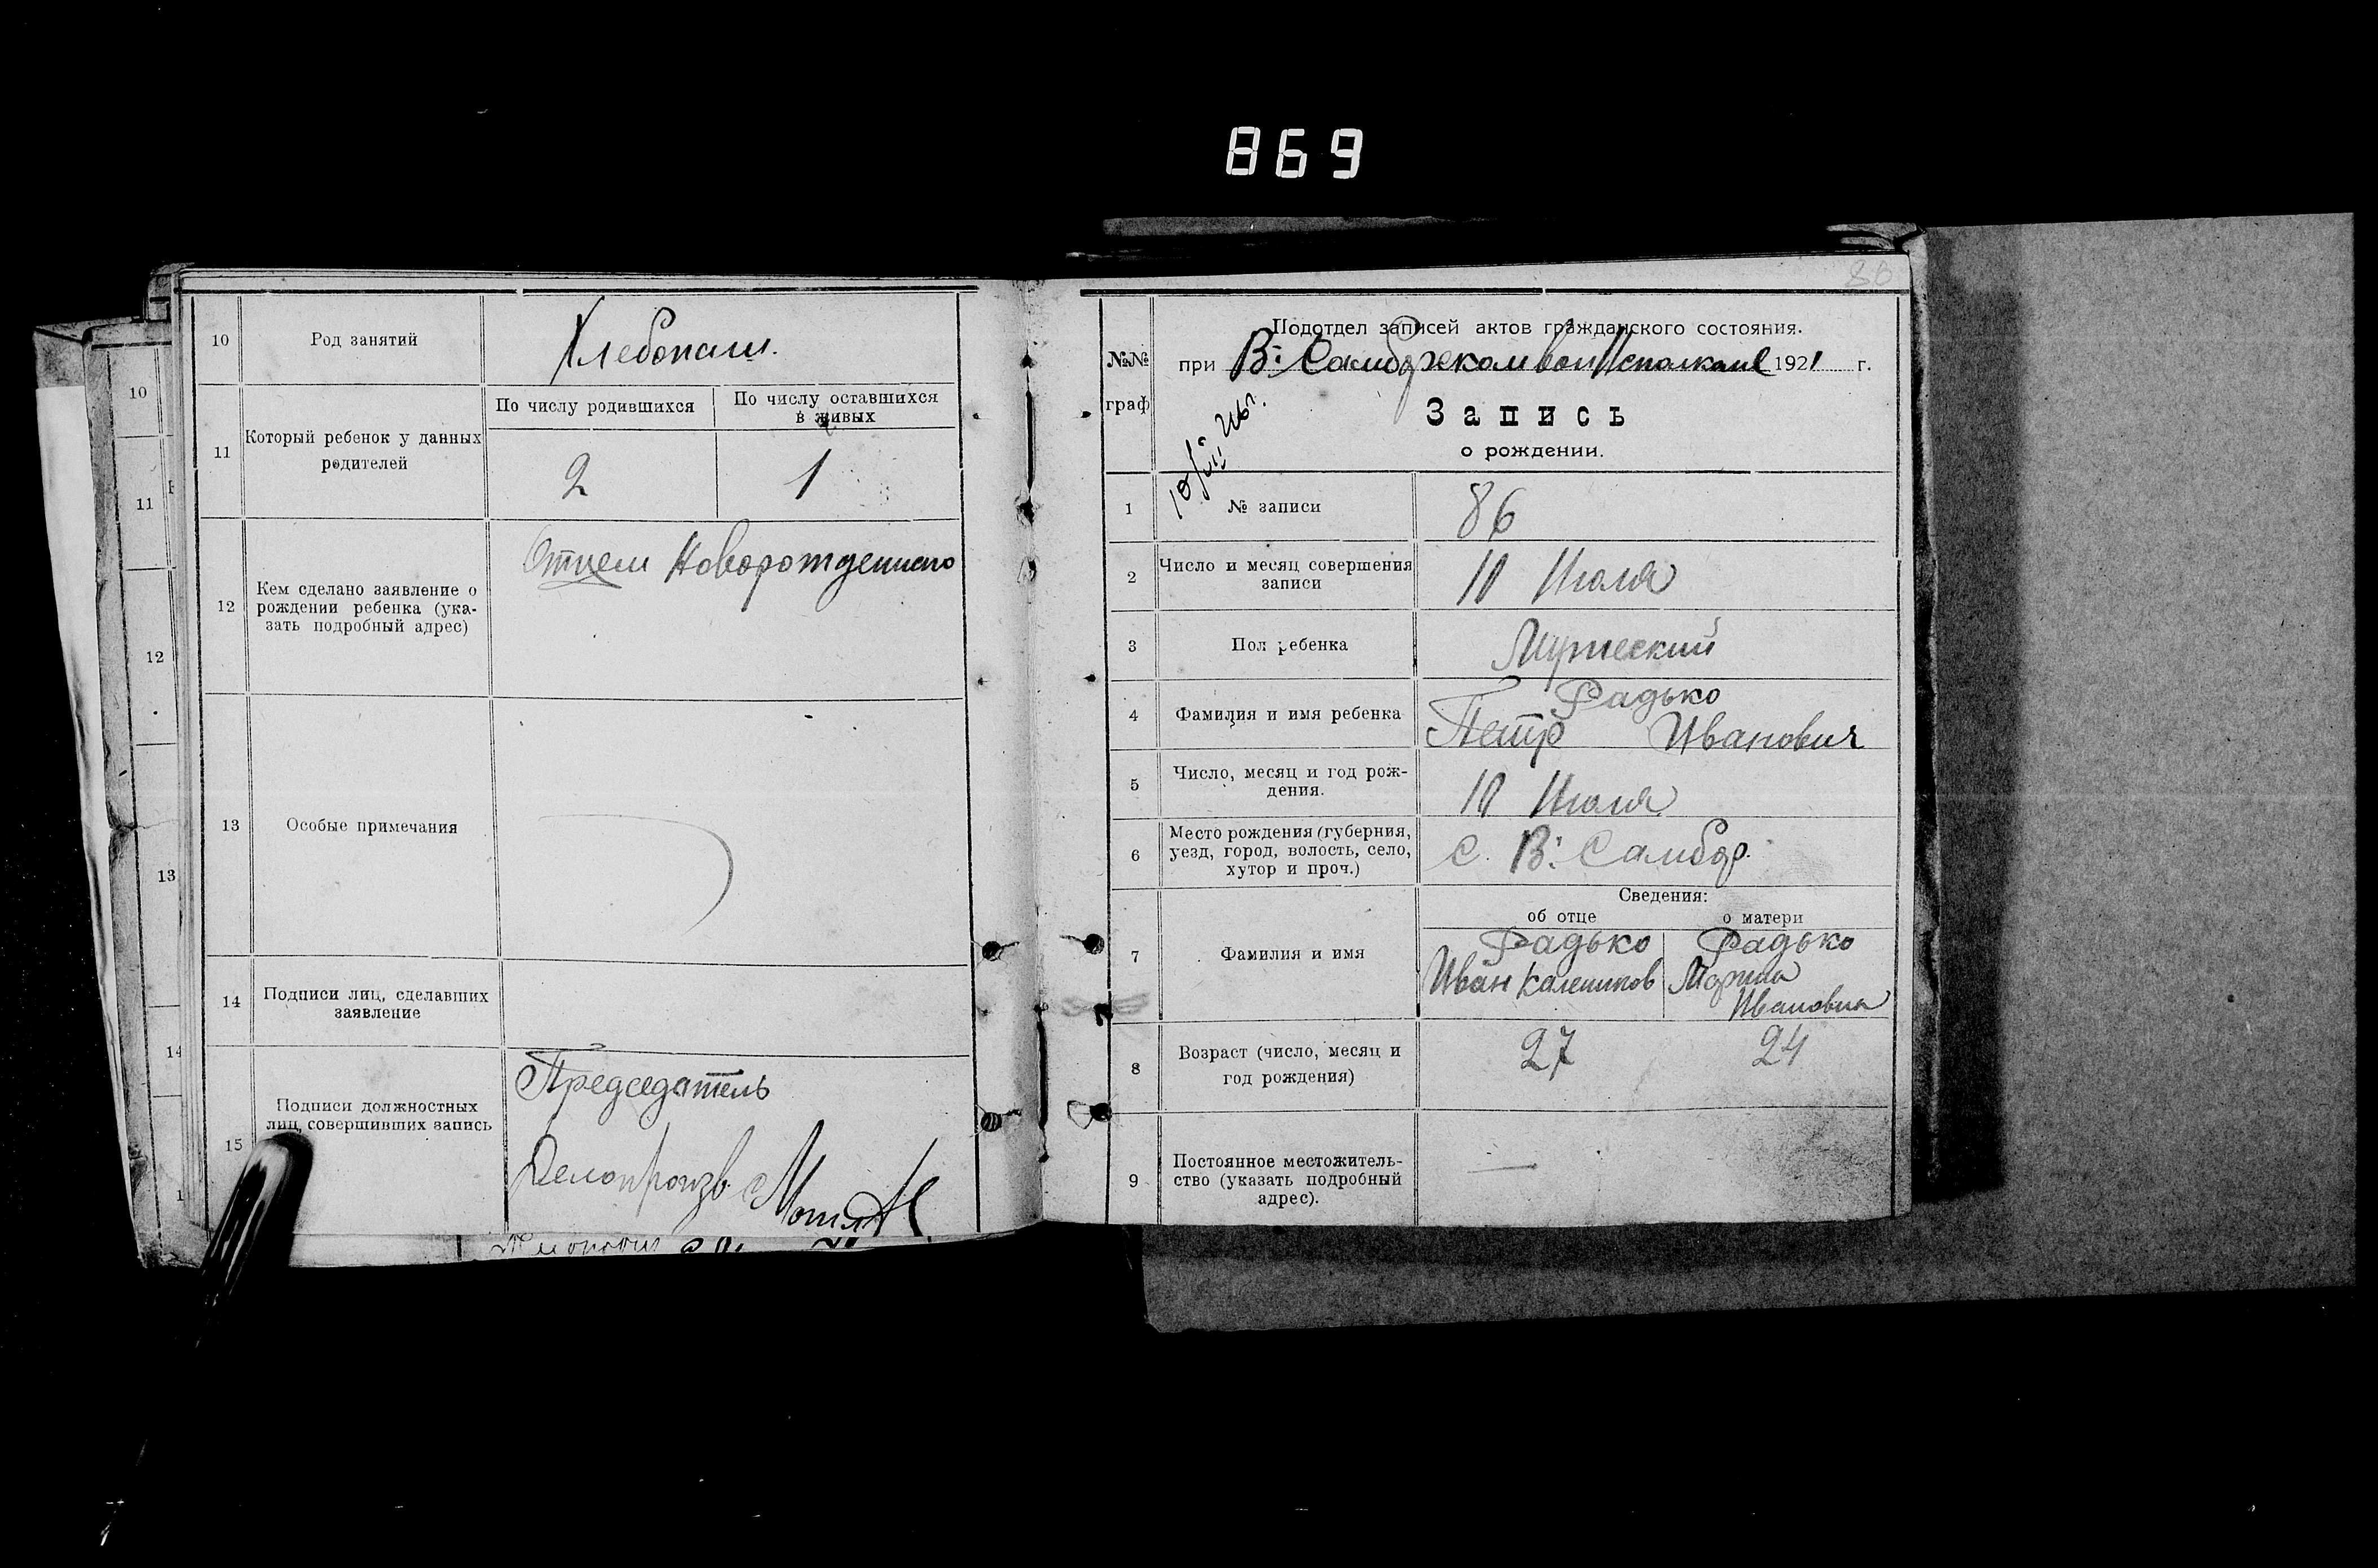 869
10
Род занятий
Хлебопаш.
11
Который ребенок у данных
родителей
По числу родившихся
По числу оставшихся
в живых
2
1
12
Кем сделано заявление о
рождении ребенка (ука-
зать подробный адрес)
Отцем Новорожденного
13
Особые примечания
14
Подписи лиц, сделавших
заявление
15
Подписи должностных
лиц, совершивших запись
Председатель
Делопроизв.
10
11
12
13
14
1
80
№№
граф
Подотдел записей актов гражданского состояния.
при В: Самборском вол Исполкоме 1921 г.
Запись
о рождении.
1
№ записи
86
2
Число и месяц совершения
записи
10 Июля
3
Пол ребенка
Мужеский
4
Фамилия и имя ребенка
Радько
Петр Иванович
5
Число, месяц и год рож-
дения.
10 Июля
6
Место рождения (губерния,
уезд, город, волость, село,
хутор и проч.)
с. В: Самбор.
Сведения:
об отце
о матери
7
Фамилия и имя
Радько
Иван
Радько
Мария
Ивановна
8
Возраст (число, месяц и
год рождения)
27
24
9
Постоянное местожитель-
ство (указать подробный
адрес).